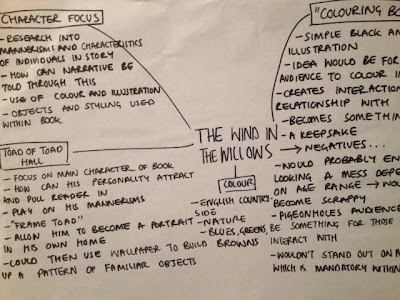 CHARACTER FOCUS
- RESEARCH INTO
MANNERISMS AND CHARACTERISTICS
OF INDIVIDUALS IN STORY
- HOW CAN NARRATIVE BE
TOLD THROUGH THIS
- USE OF COLOUR AND ILLUSTRATION
- OBJECTS AND STYLING USED
WITHIN BOOK
TOAD OF TOAD
HALL
- FOCUS ON MAIN CHARACTER OF BOOK
- HOW CAN HIS PERSONALITY ATTRACT
AND PULL READER IN
- PLAY ON HIS MANNERISMS
- "FRAME TOAD"
- ALLOW HIM TO BECOME A PORTRAIT
IN HIS OWN HOME
- COULD THEN USE WALLPAPER TO BUILD
UP A PATTERN OF FAMILIAR OBJECTS
THE WIND IN
THE WILLOWS
COLOUR
- ENGLISH COUNTRY
SIDE
- NATURE
- BLUES, GREENS,
BROWNS
"COLOURING BO
- SIMPLE BLACK AN
ILLUSTRATION
- IDEA WOULD BE FOR
AUDIENCE TO COLOUR I
- CREATES INTERACTION
RELATIONSHIP WITH
- BECOMES SOMETHIN
A KEEPSAKE
→ NEGATIVES...
- WOULD PROBABLY EN
LOOKING A MESS DEPE
ON AGE RANGE → WOU
BECOME SCRAPPY
- PIGEONHOLES AUDIENCE
BE SOMETHING FOR THOSE
INTERACT WITH
- WOULDN'T STAND OUT ON
WHICH IS MANDATORY WITHIN